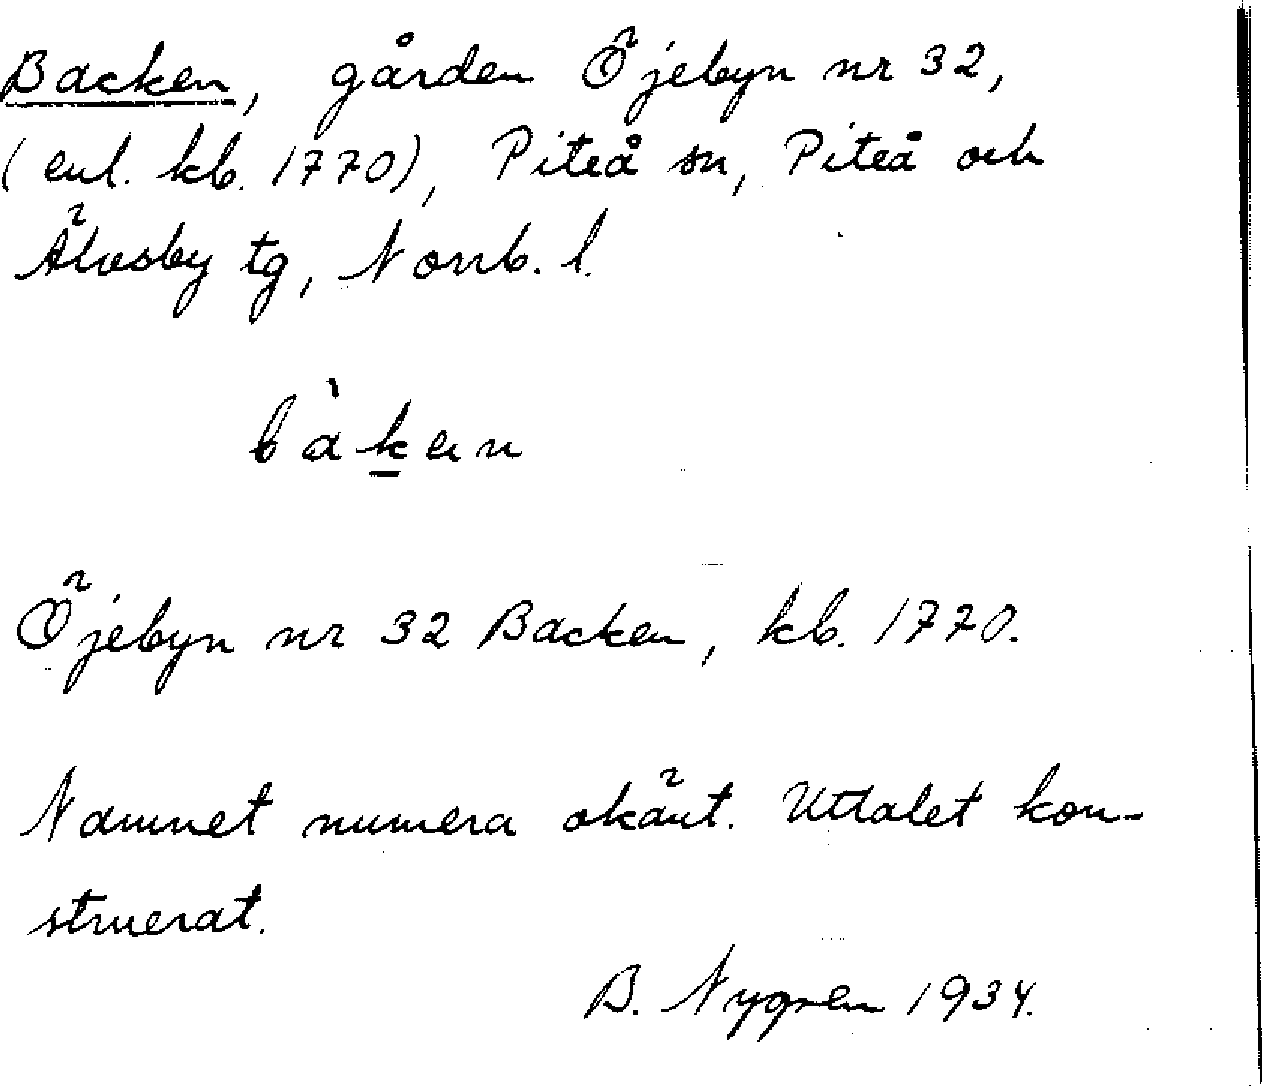 Backen, gården Öjebyn nr 32,
(enl. kb. 1770), Piteå sn, Piteå och
Älvsby tg, Norrb. l.
bàken
Öjebyn nr 32 Backen, kb. 1770.
Namnet numera okänt. Uttalet kon-
struerat.
B. Nygren 1934.